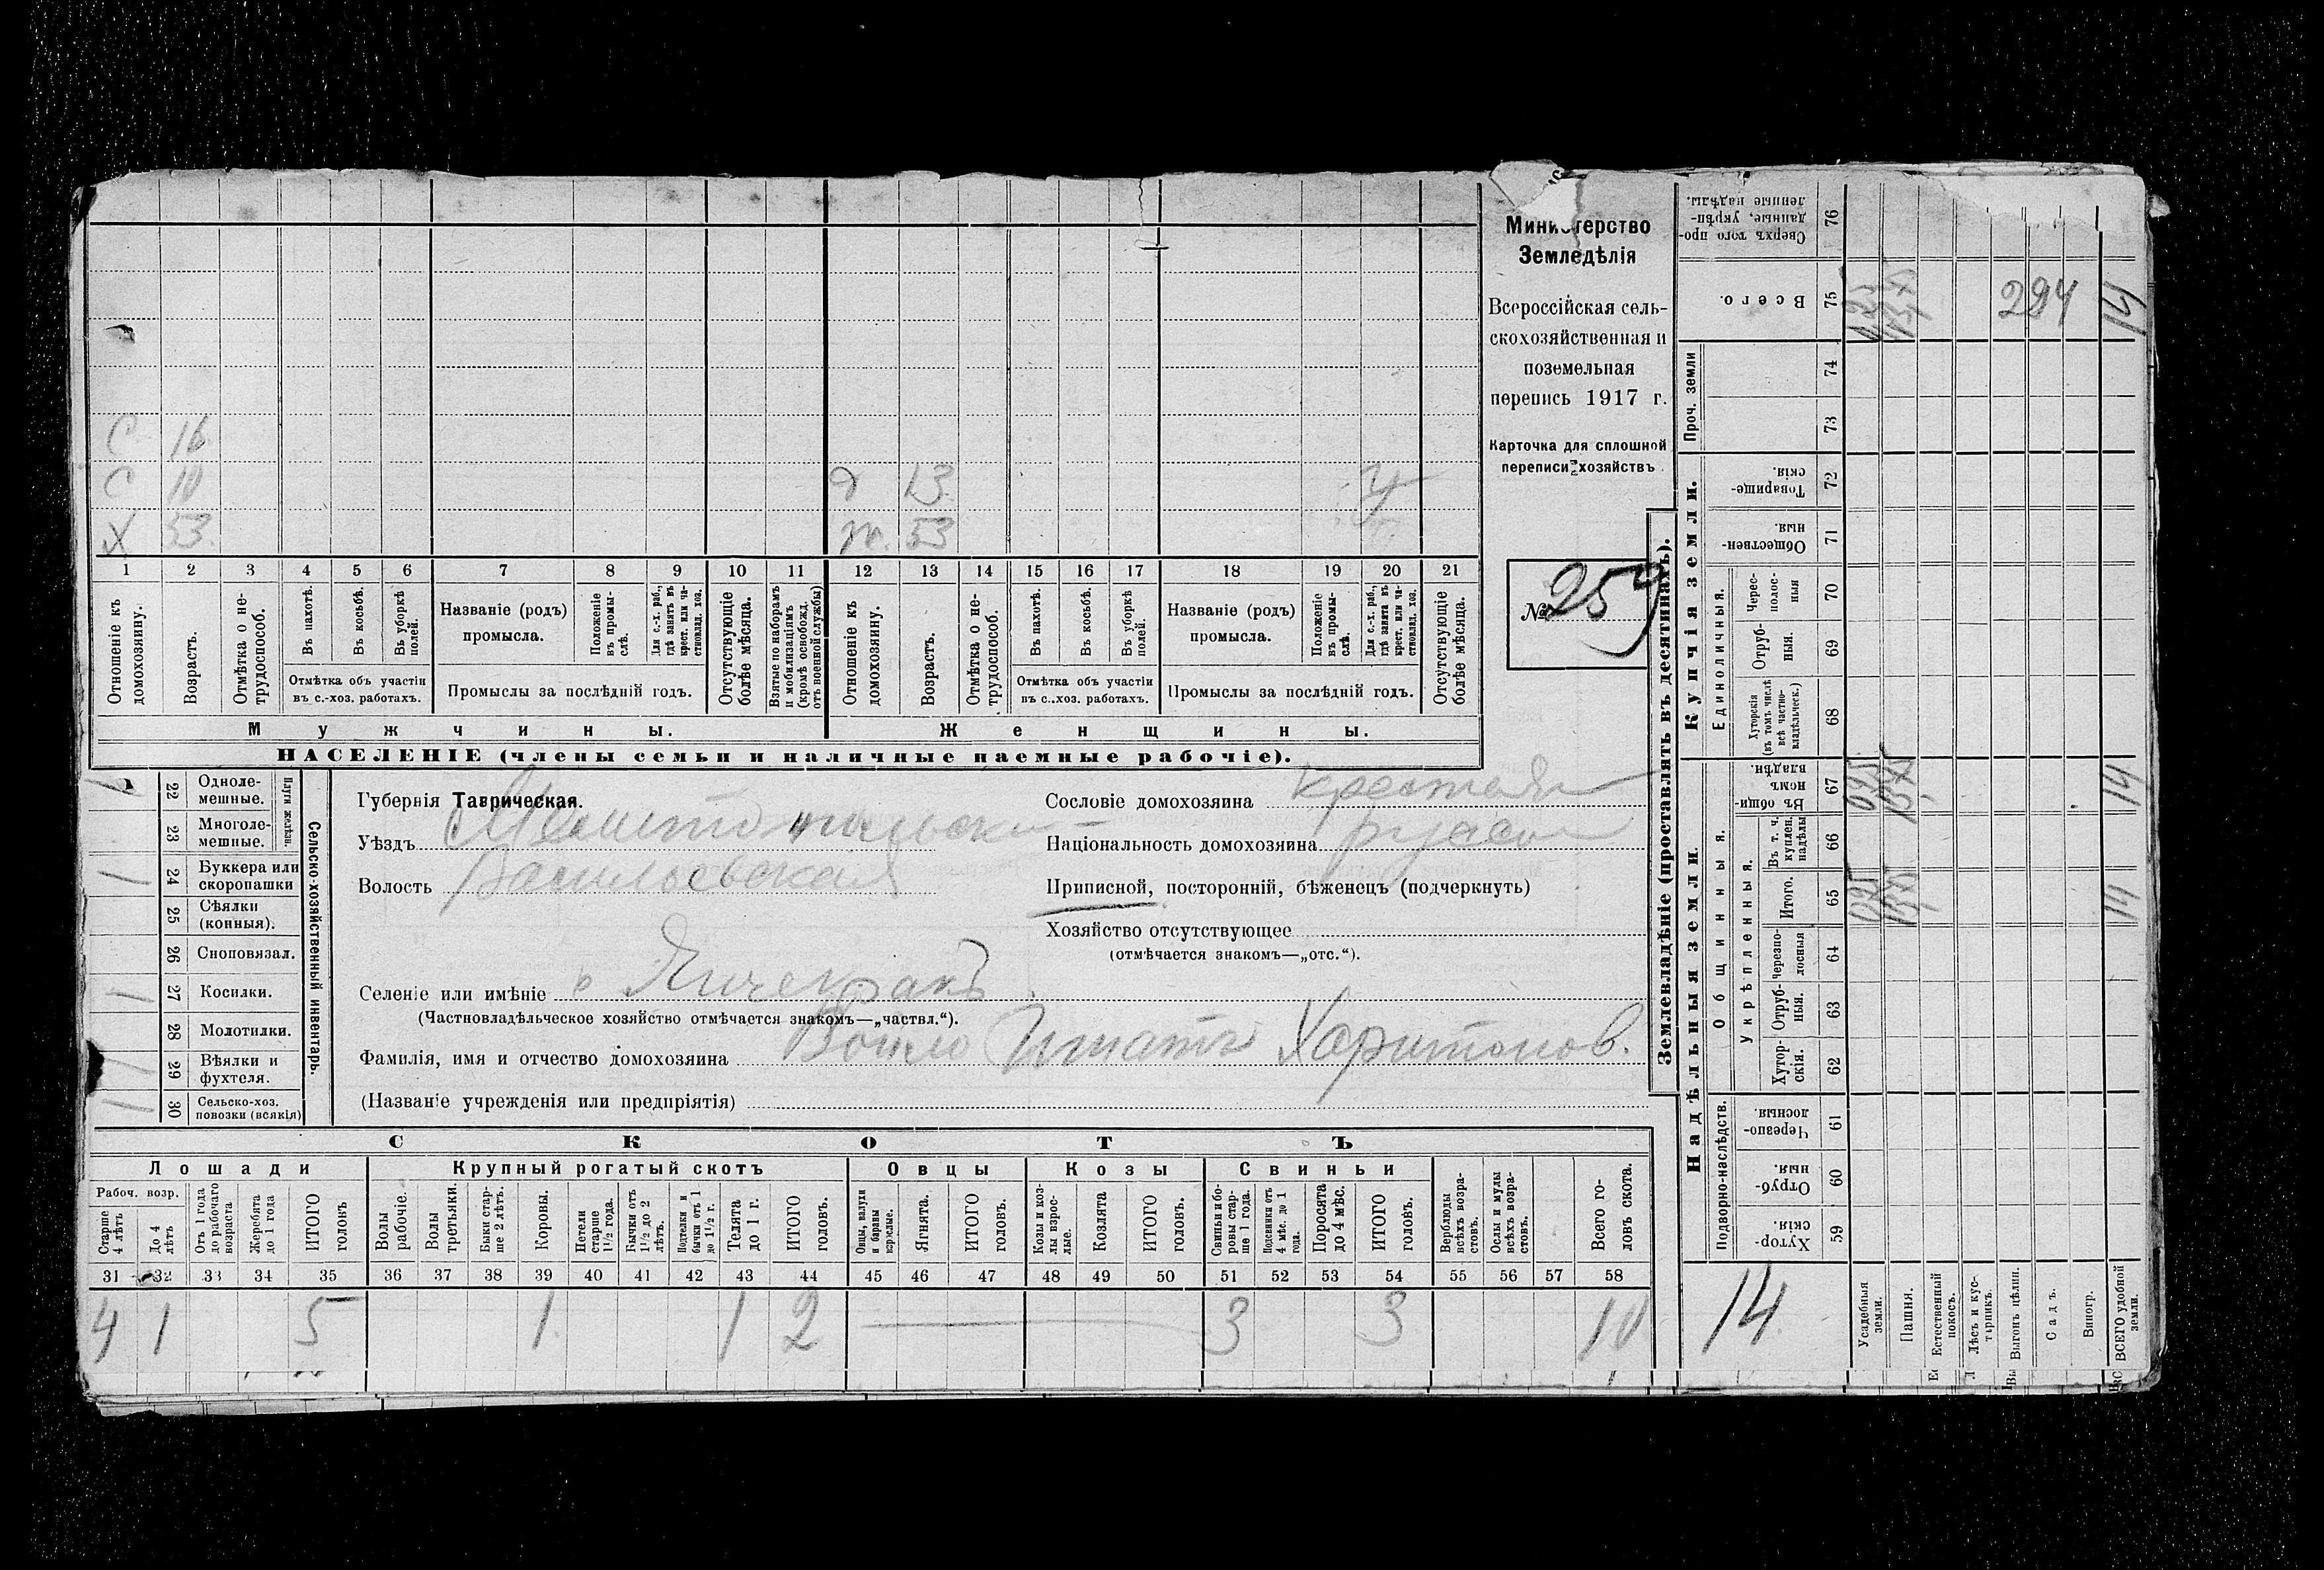 С 16
С 10 д 13
Х 53 ж. 53 У
1 2 3 4 5 6 7 8 9 10 11 12 13 14 15 16 17 18 19 20 21
Отношеніе къ домохозяину.
Возрастъ.
Отмѣтка о не-трудоспособ.
Въ пахотѣ.
Въ косьбѣ.
Въ уборкѣ полей.
Отмѣтка объ участіи
въ с.-хоз. работахъ.
Названіе (родъ)
промысла.
Положеніе въ промы-слѣ.
Для с.-х. раб., гдѣ занятъ въ крест. или ча-стновлад. хоз.
Промыслы за послѣдній годъ.
Отсутствующіе болѣе мѣсяца.
Взятые по наборамъ и мобилизаціямъ (кромѣ освобожд. отъ военной службы)
Отношеніе къ домохозяину.
Возрастъ.
Отмѣтка о не-трудоспособ.
Въ пахотѣ.
Въ косьбѣ.
Въ уборкѣ полей.
Отмѣтка объ участіи
въ с.-хоз. работахъ.
Названіе (родъ)
промысла.
Положеніе въ промы-слѣ.
Для с.-х. раб., гдѣ занятъ въ крест. или ча-стновлад. хоз.
Промыслы за послѣдній годъ.
Отсутствующіе болѣе мѣсяца.
Мужчины. Женщины.
НАСЕЛЕНІЕ (члены семьи и наличные наемные рабочіе).
Министерство
Земледѣлія
Всероссійская сель-
скохозяйственная и
поземельная
перепись 1917 г.
Карточка для сплошной
переписи хозяйствъ
№ 259
Сельско-хозяйственный инвентарь.
Плуги желѣзн.
22 Одноле-мешные.
23 Многоле-мешные.
24 Буккера или скоропашки
25 Сѣялки (конныя).
26 Сноповязал.
27 Косилки.
28 Молотилки.
29 Вѣялки и фухтеля.
30 Сельско-хоз. повозки (всякія)
Губернія Таврическая.
Уѣздъ Мелитопольскій
Волость Васильевская
Селеніе или имѣніе с Янчекракъ
(Частновладѣльческое хозяйство отмѣчается знакомъ—„частвл.“).
Фамилія, имя и отчество домохозяина Игнатъ Харитонов.
(Названіе учрежденія или предпріятія)
Сословіе домохозяина крестьян
Національность домохозяина русск
Приписной, посторонній, бѣженецъ (подчеркнуть)
Хозяйство отсутствующее
(отмѣчается знакомъ—„отс.“).
СКОТЪ
Лошади Крупный рогатый скотъ Овцы Козы Свиньи
Рабоч. возр.
Старше 4 лѣтъ
До 4 лѣтъ
Отъ 1 года до рабочаго возраста
Жеребята до 1 года
ИТОГО головъ
Волы рабочіе.
Волы третьяки.
Быки стар-ше 2 лѣтъ.
Коровы.
Нетели старше 1½ года.
Бычки отъ 1½ до 2 лѣтъ.
Подтелки и бычки отъ 1 до 1½ г.
Телята до 1 г.
ИТОГО головъ.
Овцы, валухи и бараны взрослые.
Ягнята.
ИТОГО головъ.
Козы и коз-лы взрос-лые.
Козлята
ИТОГО головъ.
Свиньи и бо-ровы стар-ше 1 года.
Подсвинки отъ 4 мѣс. до 1 года.
Поросята до 4 мѣс.
ИТОГО головъ.
Верблюды всѣхъ возра-стовъ.
Ослы и мулы всѣхъ возра-стовъ.
Всего го-ловъ скота.
31 32 33 34 35 36 37 38 39 40 41 42 43 44 45 46 47 48 49 50 51 52 53 54 55 56 57 58
4 1 5 1 1 2 3 3 10
Землевладѣніе (проставлять въ десятинахъ).
Сверхъ того про-данные, укрѣп-ленные надѣлы. 76
Всего. 75
Проч. земли 74 73
Купчія земли.
Товарище-скія. 72
Обществен-ныя. 71
Единоличныя.
Черес-полос-ныя 70
Отруб-ныя. 69
Хуторскія (въ томъ числѣ всѣ частно-владѣльческ.) 68
Надѣльныя земли
Общинныя.
Въ общин-номъ владѣн. 67
Укрѣпленныя.
Въ т. ч. куплен. надѣлы 66
Итого. 65
Черезпо-лосныя 64
Отруб-ныя. 63
Хутор-скія. 62
Подворно-наслѣдств.
Черезпо-лосныя 61
Отруб-ныя. 60
Хутор-скія. 59
294
14
14
14
14
Усадебныя земли.
Пашня.
Естественный покосъ.
Лѣсъ и кус-тарникъ.
Выгонъ цѣлин.
Садъ.
Виногр.
ВСЕГО удобной земли.